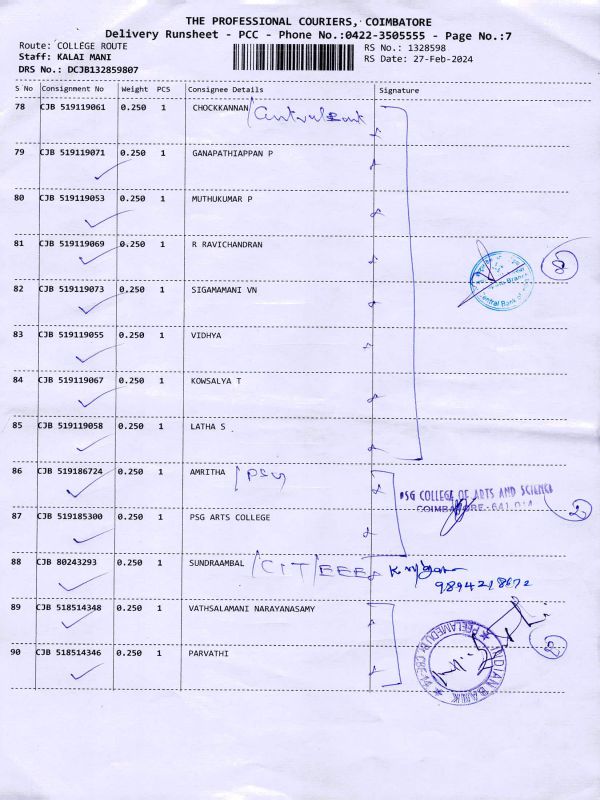 THE PROFESSIONAL COURIERS, COIMBATORE
Delivery Runsheet - PCC - Phone No.:0422-3505555 - Page No.:7
Route: COLLEGE ROUTE
Staff: KALAI MANI
DRS No.: DCJB132859807
RS No.: 1328598
RS Date: 27-Feb-2024
S No Consignment No Weight PCS Consignee Details Signature
78 CJB 519119061 0.250 1 CHOCKKANNAN
79 CJB 519119071 0.250 1 GANAPATHIAPPAN P
80 CJB 519119053 0.250 1 MUTHUKUMAR P
81 CJB 519119069 0.250 1 R RAVICHANDRAN
Central Bank of
82 CJB 519119073 0.250 1 SIGAMAMANI VN
83 CJB 519119055 0.250 1 VIDHYA
84 CJB 519119067 0.250 1 KOWSALYA T
85 CJB 519119058 0.250 1 LATHA S
86 CJB 519186724 0.250 1 AMRITHA / PSG
PSG COLLEGE OF ARTS AND SCIENCE
COIMBATORE-641 014
2
87 CJB 519185300 0.250 1 PSG ARTS COLLEGE
88 CJB 80243293 0.250 1 SUNDRAAMBAL / CIT / EEE
9894218672
89 CJB 518514348 0.250 1 VATHSALAMANI NARAYANASAMY
90 CJB 518514346 0.250 1 PARVATHI
INDIAN BANK